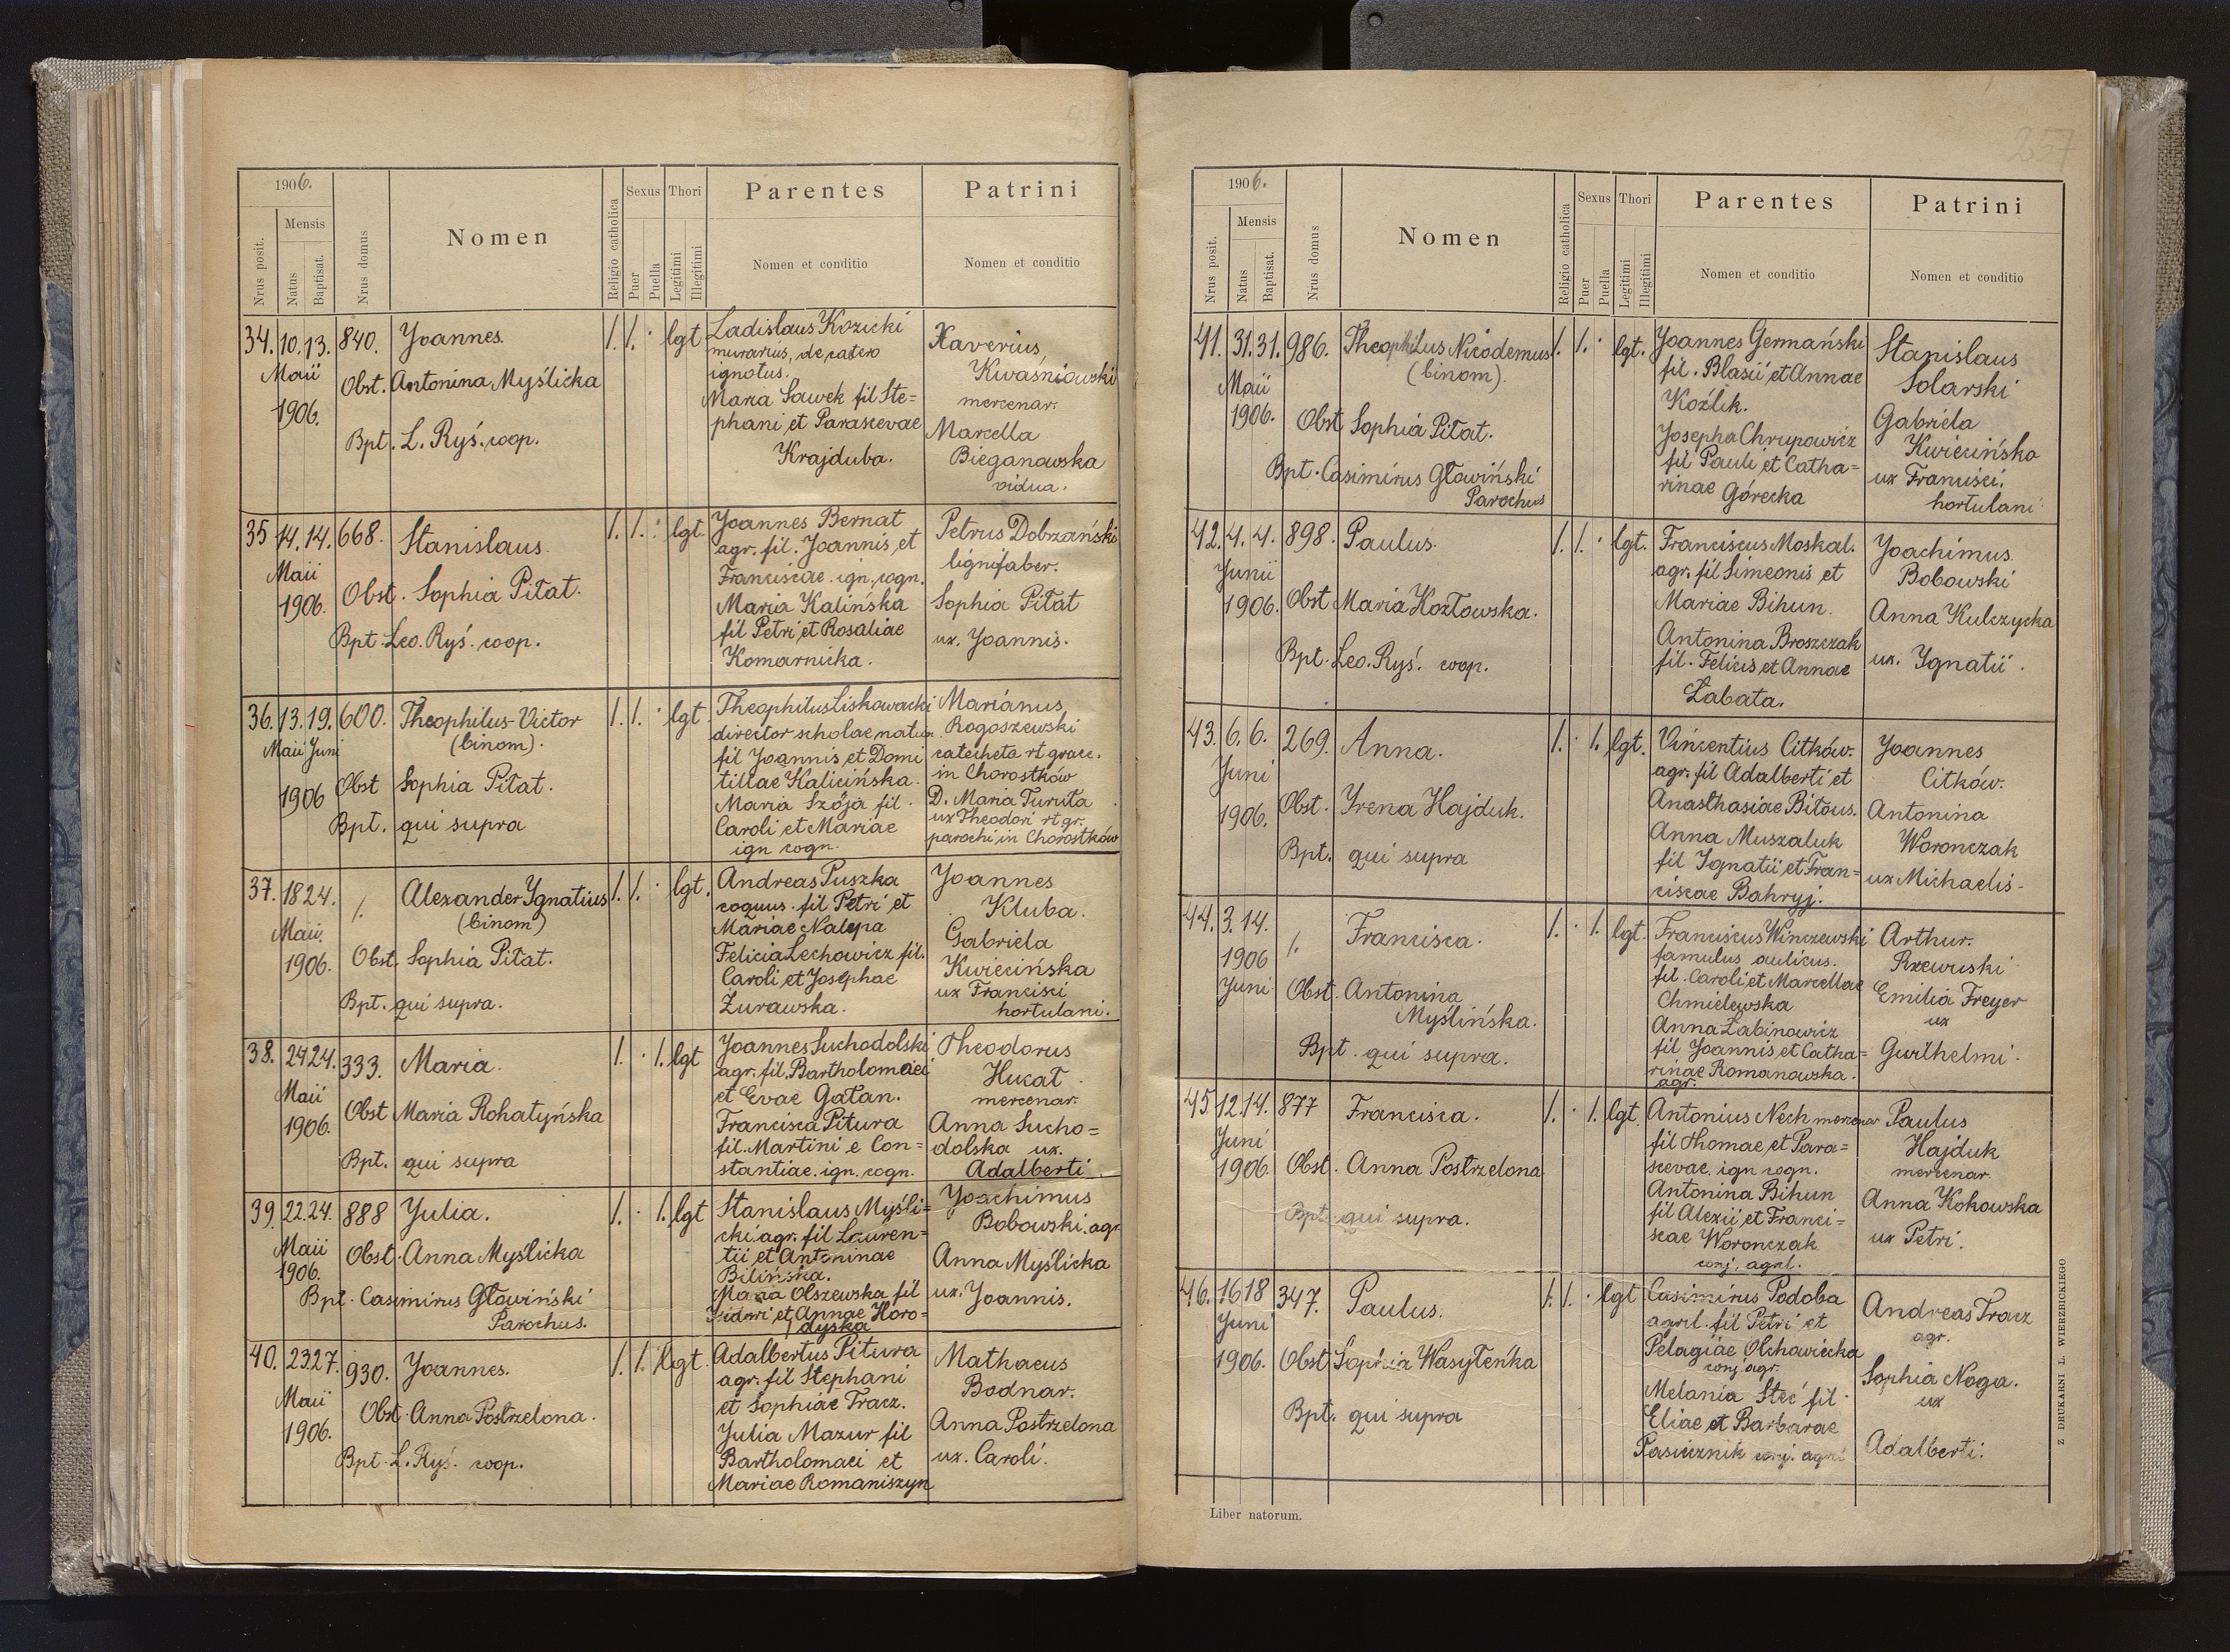 1906.
Nrus posit.
Mensis
Natus
Baptisat.
Nrus domus
Nomen
Religio catholica
Sexus
Puer
Puella
Thori
Legitimi
Illegitimi
Parentes
Nomen et conditio
Patrini
Nomen et conditio
34. 10. 13. 840. Joannes. 1. 1. · lgt
Maii
1906.
Obst. Antonina Myślicka
Bpt. L. Ryś. coop.
Ladislaus Kozicki
murarius, de catero
ignotus.
Maria Sawek fil Ste=
phani et Parascevae
Krajduba.
Xaverius
Kwaśniowski
mercenar.
Marcella
Bieganowska
vidua.
35 14. 14. 668. Stanislaus. 1. 1. · lgt.
Maii
1906.
Obst. Sophia Piłat.
Bpt. Leo. Ryś. coop.
Joannes Bernat
agr. fil. Joannis et
Franciscae ign. cogn.
Maria Kalińska
fil Petri et Rosaliae
Komarnicka.
Petrus Dobrzański
lignifaber.
Sophia Piłat
ux. Joannis.
36. 13. 19. 600. Theophilus-Victor 1. 1. · lgt.
(binom).
Maii Juni
1906
Obst Sophia Piłat.
Bpt. qui supra
Theophilus Liskowacki
director scholae natus
fil Joannis et Domi
tillae Kalicińska.
Maria Szója fil.
Caroli et Mariae
ign cogn.
Marianus
Rogoszewski
catecheta rt graec.
in Chorostków
D. Maria Turuta
ux Theodori rt gr.
parochi in Chorostków
37. 18 24. 1. Alexander Ignatius 1. 1. · lgt.
(binom)
Maii
1906.
Obst. Sophia Piłat.
Bpt. qui supra.
Andreas Puszka
coquus. fil Petri et
Mariae Nalepa
Felicia Lechowicz fil.
Caroli et Josephae
Żurawska.
Joannes
Kluba.
Gabriela
Kwiecińska
ux Francisci
hortulani.
38. 24 24. 333. Maria. 1. · 1. lgt
Maii
1906.
Obst Maria Rohatyńska
Bpt. qui supra
Joannes Suchodolski
agr. fil. Bartholomaei
et Evae Gałan.
Francisca Pitura
fil. Martini e Con=
stantiae. ign. cogn.
Theodorus
Hucał.
mercenar.
Anna Sucho=
dolska ux.
Adalberti.
39. 22. 24. 888 Julia. 1. · 1. lgt
Maii
1906.
Obst. Anna Myślicka
Bpt. Casimirus Głowiński
Parochus.
Stanislaus Myśli=
cki. agr. fil Lauren=
tii et Antoninae
Bilińska.
Maria Olszewska fil
Isidori et Annae Horo=
dyska
Joachimus
Bobowski. agr.
Anna Myślicka
ux. Joannis.
40. 23 27. 930. Joannes. 1. 1. · lgt.
Maii
1906.
Obst. Anna Postrzelona.
Bpt. L. Ryś. coop.
Adalbertus Pitura
agr. fil Stephani
et Sophiae Tracz.
Julia Mazur fil
Bartholomaei et
Mariae Romaniszyn
Mathaeus
Bodnar.
Anna Postrzelona
ux. Caroli.
257
1906.
Nrus posit.
Mensis
Natus
Baptisat.
Nrus domus
Nomen
Religio catholica
Sexus
Puer
Puella
Thori
Legitimi
Illegitimi
Parentes
Nomen et conditio
Patrini
Nomen et conditio
41. 31. 31. 986. Theophilus Nicodemus 1. 1. · lgt.
(binom).
Maii
1906.
Obst Sophia Piłat.
Bpt. Casimirus Głowiński
Parochus
Joannes Germański
fil. Blasii et Annae
Koźlik.
Josepha Chrupowicz
fil Pauli et Catha=
rinae Górecka
Stanislaus
Solarski
Gabriela
Kwiecińska
ux Francisci.
hortulani
42. 4. 4. 898. Paulus. 1. 1. · lgt.
Junii
1906.
Obst Maria Kozłowska.
Bpt. Leo. Ryś. coop.
Franciscus Moskal.
agr. fil Simeonis et
Mariae Bihun.
Antonina Broszczak
fil. Felicis et Annae
Łabata.
Joachimus
Bobowski
Anna Kulczycka
ux. Ignatii.
43. 6. 6. 269. Anna. 1. · 1. lgt.
Juni
1906.
Obst. Irena Hajduk.
Bpt. qui supra
Vincentius Citków.
agr. fil Adalberti et
Anasthasiae Bitous.
Anna Muszaluk
fil Ignatii et Fran=
ciscae Bahryj.
Joannes
Citków.
Antonina
Woronczak
ux Michaelis.
44. 3. 14. 1. Francisca. 1. · 1. lgt.
1906
Juni
Obst. Antonina
Myślińska.
Bpt. qui supra.
Franciscus Winczewski
famulus aulicus.
fil. Caroli et Marcellae
Chmielewska
Anna Żabinowicz
fil Joannis et Catha=
rinae Romanowska.
Arthur.
Rzewuski
Emilia Freyer
ux
Gwilhelmi.
45 12. 14. 877 Francisca. 1. · 1. lgt.
Juni
1906.
Obst. Anna Postrzelona
Bpt. qui supra.
agr.
Antonius Nech mercenar
fil Thomae et Para=
scevae. ign cogn.
Antonina Bihun
fil Alexii et Franci=
scae Woronczak
conj. agrl.
Paulus
Hajduk
mercenar.
Anna Kohowska
ux Petri.
46. 16 18 347. Paulus. 1. 1. · lgt
Juni
1906.
Obst. Sophia Wasyleńka
Bpt. qui supra
Casimirus Podoba
agrcl. fil Petri et
Pelagiae Olchowiecka
conj. agr.
Melania Steć fil.
Eliae et Barbarae
Pasicznik conj. agrl
Andreas Tracz
agr.
Sophia Noga.
ux
Adalberti.
Liber natorum.
Z DRUKARNI L. WIERZBICKIEGO